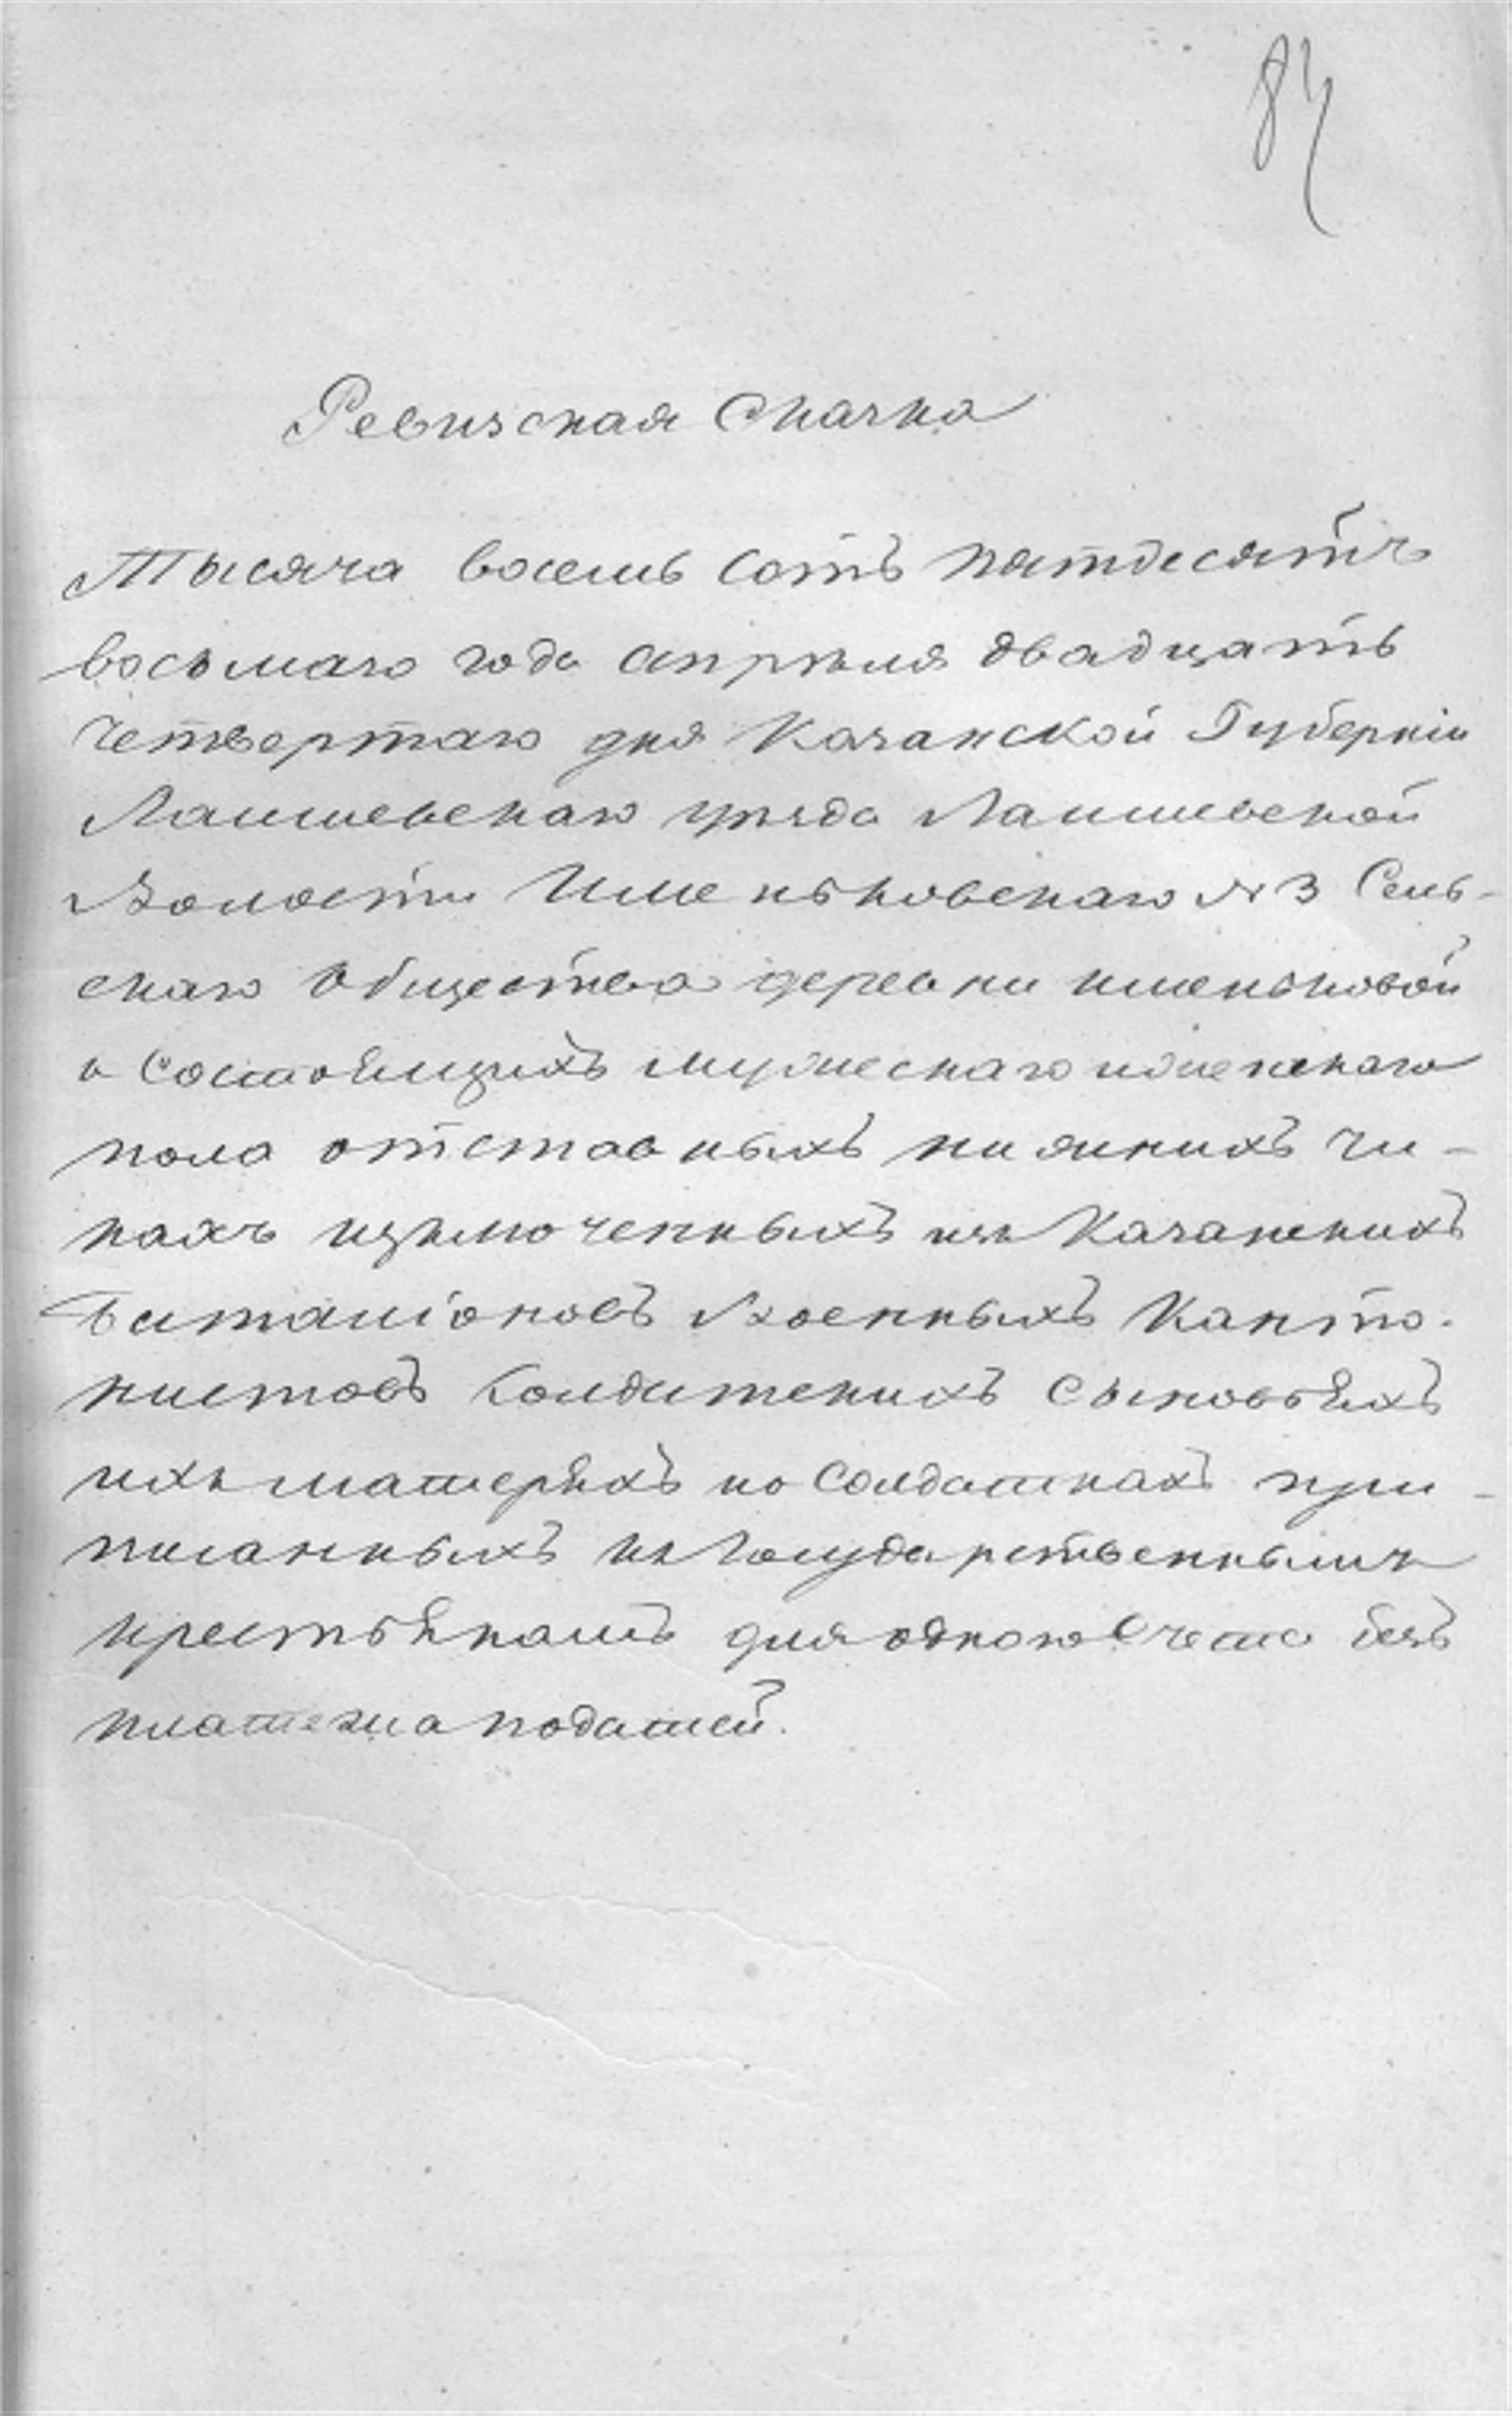 84
Ревизская Сказка
Тысяча восемь сотъ пятдесятъ
восьмаго года апрѣля двадцать
четвертаго дня Казанской Губерніи
Лаишевскаго уѣзда Лаишевской
Волости Именьковскаго №3 Сель-
скаго общества деревни именьковой
о состоящихъ мужескаго иженскаго
пола отставныхъ нижнихъ чи-
нахъ изключенныхъ изъ Казанскихъ
баталіоновъ Военныхъ Канто-
нистовъ солдатскихъ сыновьяхъ
ихъ матеряхъ по солдаткахъ при-
писанныхъ къ Государственнымъ
крестьянамъ для одного счета безъ
платежа податей.